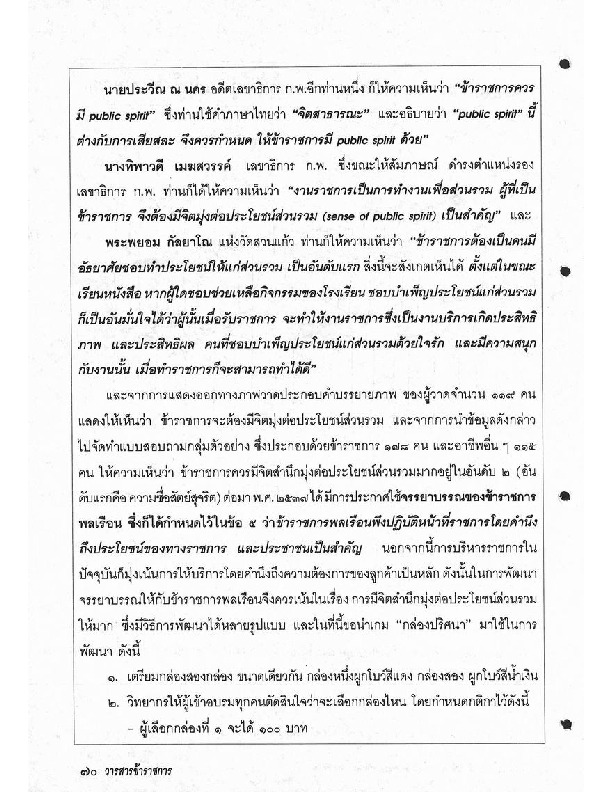 นายประวีณ ณ นคร อดีตเลขาธิการ ก.พ.อีกท่านหนึ่ง ก็ให้ความเห็นว่า “ข้าราชการควร
มี public spirit” ซึ่งท่านใช้คำภาษาไทยว่า “จิตสาธารณะ” และอธิบายว่า “public spirit” นี้
ต่างกับการเสียสละ จึงควรกำหนด ให้ข้าราชการมี public spirit ด้วย”
นางทิพาวดี เมฆสวรรค์ เลขาธิการ ก.พ. ซึ่งขณะให้สัมภาษณ์ ดำรงตำแหน่งรอง
เลขาธิการ ก.พ. ท่านก็ได้ให้ความเห็นว่า “งานราชการเป็นการทำงานเพื่อส่วนรวม ผู้ที่เป็น
ข้าราชการ จึงต้องมีจิตมุ่งต่อประโยชน์ส่วนรวม (sense of public spirit) เป็นสำคัญ” และ
พระพยอม กัลยาโณ แห่งวัดสวนแก้ว ท่านก็ให้ความเห็นว่า “ข้าราชการต้องเป็นคนมี
อัธยาศัยชอบทำประโยชน์ให้แก่ส่วนรวม เป็นอันดับแรก สิ่งนี้จะสังเกตเห็นได้ ตั้งแต่ในขณะ
เรียนหนังสือ หากผู้ใดชอบช่วยเหลือกิจกรรมของโรงเรียน ชอบบำเพ็ญประโยชน์แก่ส่วนรวม
ก็เป็นอันมั่นใจได้ว่าผู้นั้นเมื่อรับราชการ จะทำให้งานราชการซึ่งเป็นงานบริการเกิดประสิทธิ
ภาพ และประสิทธิผล คนที่ชอบบำเพ็ญประโยชน์แก่ส่วนรวมด้วยใจรัก และมีความสนุก
กับงานนั้น เมื่อทำราชการก็จะสามารถทำได้ดี”
และจากการแสดงออกทางภาพวาดประกอบคำบรรยายภาพ ของผู้วาดจำนวน ๑๑๙ คน
แสดงให้เห็นว่า ข้าราชการจะต้องมีจิตมุ่งต่อประโยชน์ส่วนรวม และจากการนำข้อมูลดังกล่าว
ไปจัดทำแบบสอบถามกลุ่มตัวอย่าง ซึ่งประกอบด้วยข้าราชการ ๑๗๘ คน และอาชีพอื่น ๆ ๑๑๕
คน ให้ความเห็นว่า ข้าราชการควรมีจิตสำนึกมุ่งต่อประโยชน์ส่วนรวมมากอยู่ในอันดับ ๒ (อัน
ดับแรกคือ ความซื่อสัตย์สุจริต) ต่อมา พ.ศ. ๒๕๓๗ ได้ มีการประกาศใช้จรรยาบรรณของข้าราชการ
พลเรือน ซึ่งก็ได้กำหนดไว้ในข้อ ๕ ว่าข้าราชการพลเรือนพึงปฏิบัติหน้าที่ราชการโดยคำนึง
ถึงประโยชน์ของทางราชการ และประชาชนเป็นสำคัญ นอกจากนี้การบริหารราชการใน
ปัจจุบันก็มุ่งเน้นการให้บริการโดยคำนึงถึงความต้องการของลูกค้าเป็นหลัก ดังนั้นในการพัฒนา
จรรยาบรรณให้กับข้าราชการพลเรือนจึงควรเน้นในเรื่อง การมีจิตสำนึกมุ่งต่อประโยชน์ส่วนรวม
ให้มาก ซึ่งมีวิธีการพัฒนาได้หลายรูปแบบ และในที่นี้ขอนำเกม “กล่องปริศนา” มาใช้ในการ
พัฒนา ดังนี้
๑. เตรียมกล่องสองกล่อง ขนาดเดียวกัน กล่องหนึ่งผูกโบว์สีแดง กล่องสอง ผูกโบว์สีน้ำเงิน
๒. วิทยากรให้ผู้เข้าอบรมทุกคนตัดสินใจว่าจะเลือกกล่องไหน โดยกำหนดกติกาไว้ดังนี้
- ผู้เลือกกล่องที่ ๑ จะได้ ๑๐๐ บาท
๗๐ วารสารข้าราชการ